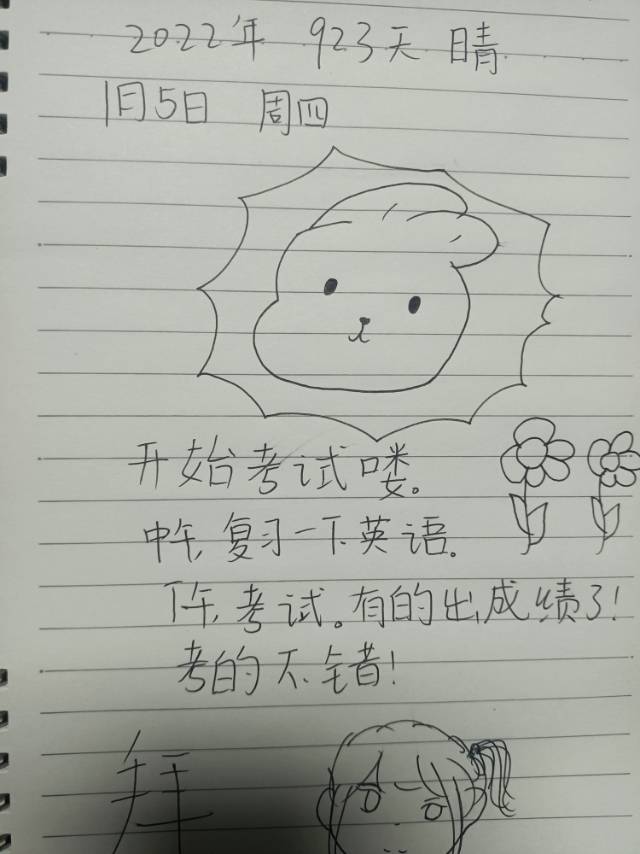 2022年 923天 晴
1月5日 周四
开始考试喽。
中午,复习一下英语.
下午,考试。有的出成绩了!
考的不错!